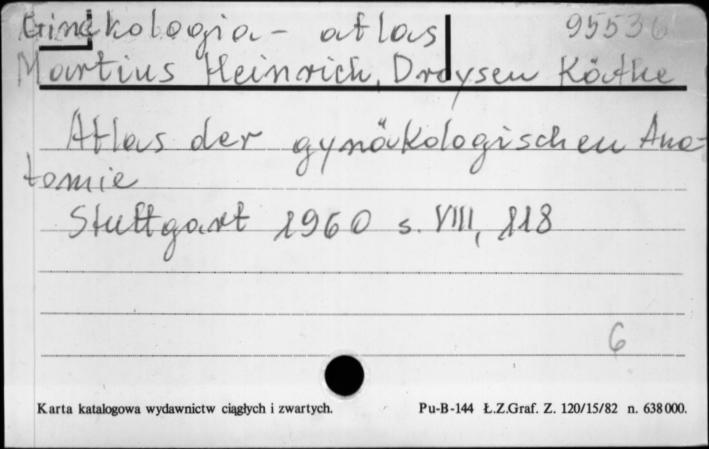 Ginekologia - atlas 95536
Martius Heinrich, Droysen Käthe
Atlas der gynäkologischen Ana-
tomie
Stuttgart 1960 s. VIII, 118
6
Karta katalogowa wydawnictw ciągłych i zwartych. Pu-B-144 Ł.Z.Graf. Z. 120/15/82 n. 638000.